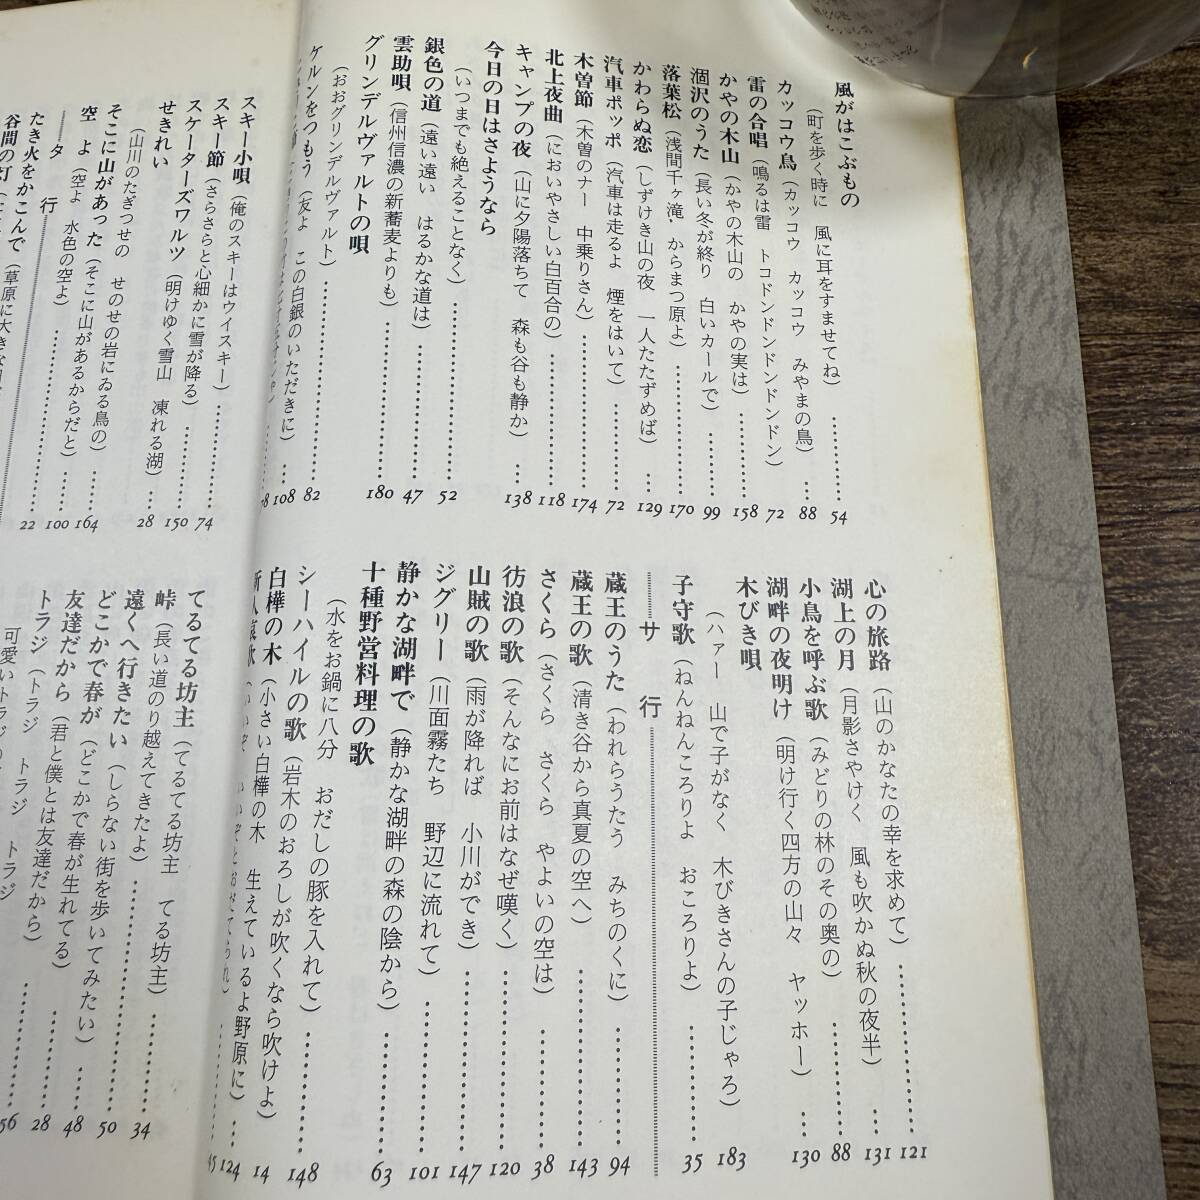 風がはこぶもの
(町を歩く時に 風に耳をすませてね)………54
カッコウ鳥(カッコウ カッコウ みやまの鳥)…88
雷の合唱(鳴るは雷 トコドンドンドンドンドン)72
かやの木山(かやの木山の かやの実は)………158
涸沢のうた(長い冬が終り 白いカールで)……99
落葉松(浅間千ヶ滝・からまつ原よ)………170
かわらぬ恋(しずけき山の夜 一人たたずめば)…129
汽車ポッポ(汽車は走るよ 煙をはいて)………72
木曽節(木曽のナー 中乗りさん)………174
北上夜曲(においやさしい白百合の)………118
キャンプの夜(山に夕陽落ちて 森も谷も静か)…138
今日の日はさようなら
(いつまでも絶えることなく)………52
銀色の道(遠い遠い はるかな道は)………47
雲助唄(信州信濃の新蕎麦よりも)………180
グリンデルヴァルトの唄
(おおグリンデルヴァルト)………82
ケルンをつもう(友よ この白銀のいただきに)…108
78
心の旅路(山のかなたの幸を求めて)………121
湖上の月(月影さやけく 風も吹かぬ秋の夜半)…131
小鳥を呼ぶ歌(みどりの林のその奥の)………88
湖畔の夜明け(明け行く四方の山々 ヤッホー)…130
木びき唄
(ハァー 山で子がなく 木びきさんの子じゃろ)183
子守歌(ねんねんころりよ おころりよ)………35
サ 行
蔵王のうた(われらうたう みちのくに)………94
蔵王の歌(清き谷から真夏の空へ)………143
さくら(さくら さくら やよいの空は)………38
彷浪の歌(そんなにお前はなぜ嘆く)………120
山賊の歌(雨が降れば 小川ができ)………147
ジグリー(川面霧たち 野辺に流れて)………101
静かな湖畔で(静かな湖畔の森の陰から)………63
十種野営料理の歌
(水をお鍋に八分 おだしの豚を入れて)………148
シーハイルの歌(岩木のおろしが吹くなら吹けよ)14
白樺の木(小さい白樺の木 生えているよ野原に)…124
スキー小唄(俺のスキーはウイスキー)………74
スキー節(さらさらと心細かに雪が降る)………150
スケーターズワルツ(明けゆく雪山 凍れる湖)…28
せきれい
(山川のたぎつせの せのせの岩にゐる鳥の)……164
そこに山があった(そこに山があるからだと)……100
空 よ(空よ 水色の空よ)………22
タ 行
たき火をかこんで(草原に
谷間の灯
てるてる坊主(てるてる坊主 てる坊主)………34
峠(長い道のり越えてきたよ)………50
遠くへ行きたい(しらない街を歩いてみたい)……48
どこかで春が(どこかで春が生れてる)………28
友達だから(君と僕とは友達だから)………56
トラジ(トラジ トラジ トラジ
可愛いトラジの